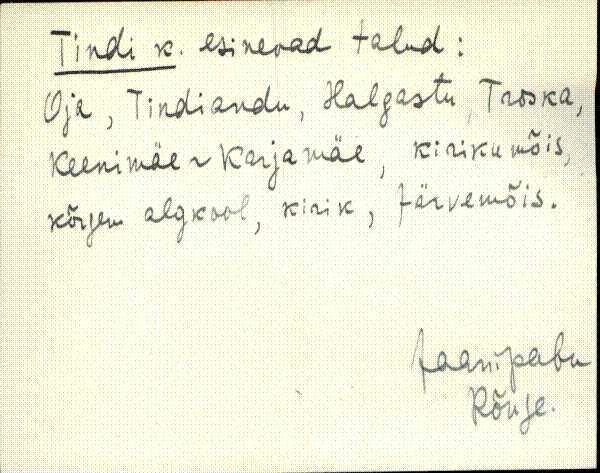 Tindi k. esinevad talud:
Oja, Tindiandu, Halgastu, Troska,
Keenimäe ~ Karjamäe, kirikumõis,
kõrgem algkool, kirik, Järvemõis.
Jaanipabu
Rõuge.